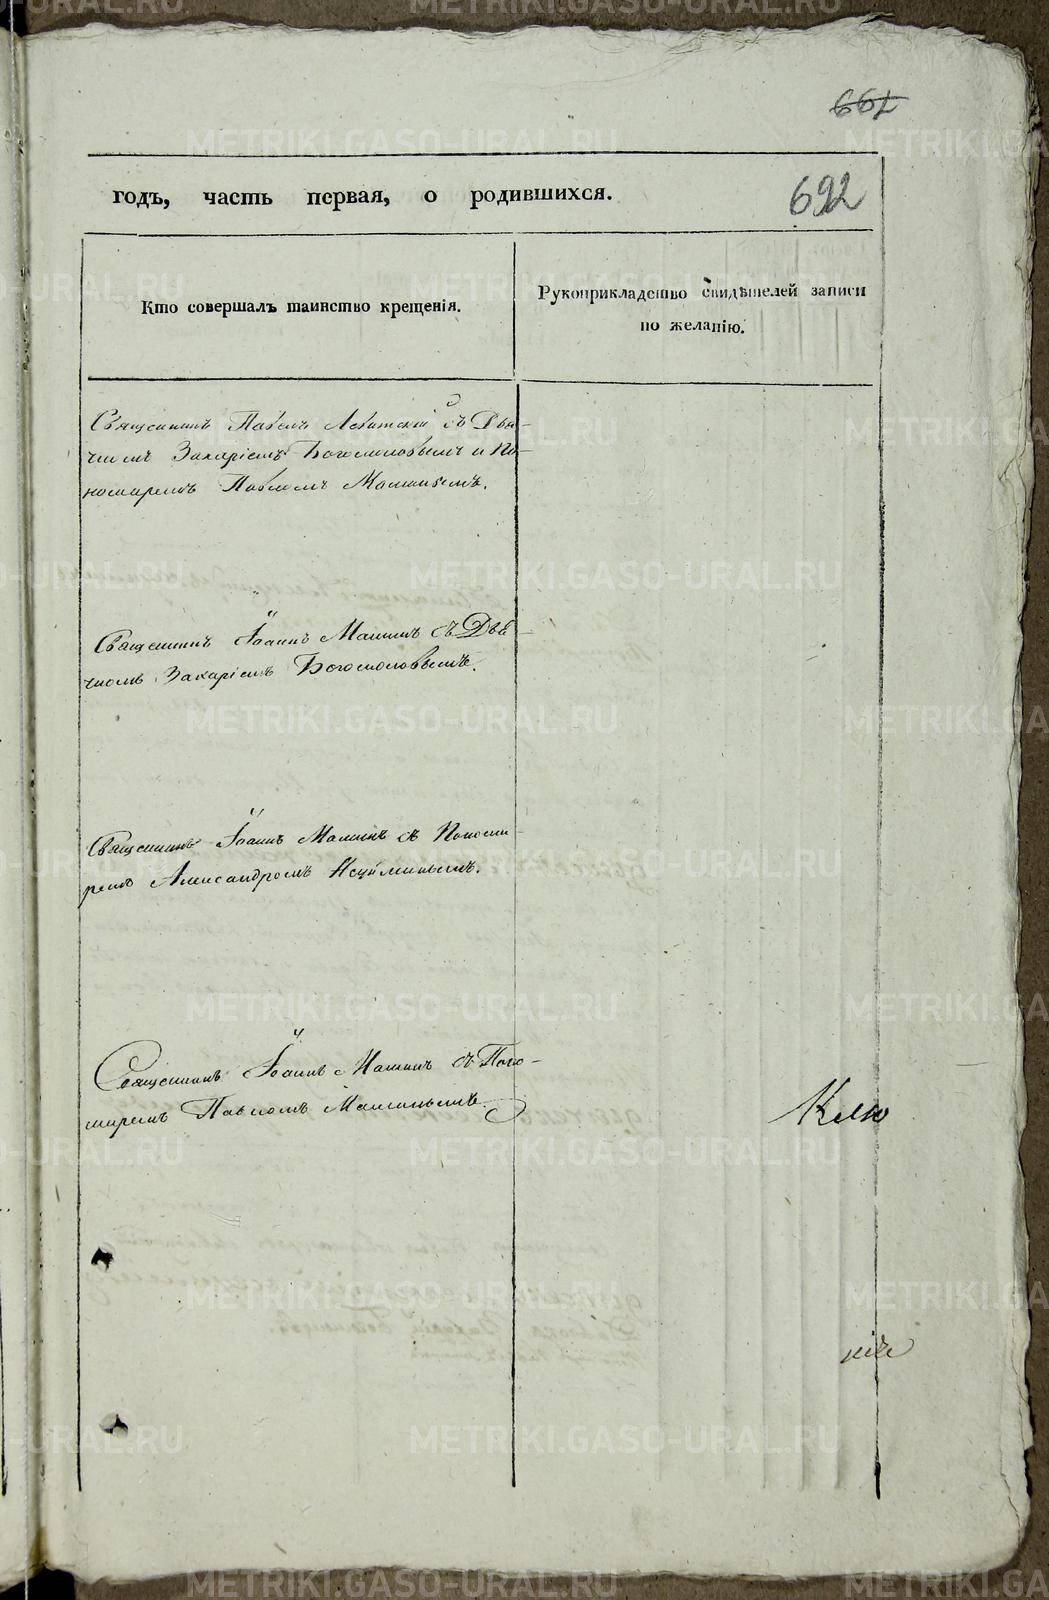 661
692
годъ, часть первая, о родившихся.
Кто совершалъ таинство крещенія.
Рукоприкладство свидѣтелей записи
по желанію.
Священникъ Павелъ Левитскій съ Дья-
чкомъ Захаріемъ Богослововымъ и По-
номаремъ Павломъ Маминымъ.
Священникъ Іоаннъ Маминъ съ Дья-
чкомъ Захаріемъ Богослововымъ.
Священникъ Іоаннъ Маминъ съ Понома-
ремъ Александромъ
Священникъ Іоаннъ Маминъ съ Поно-
маремъ Павломъ Маминымъ.
Клю
METRIKI.GASO-URAL.RU